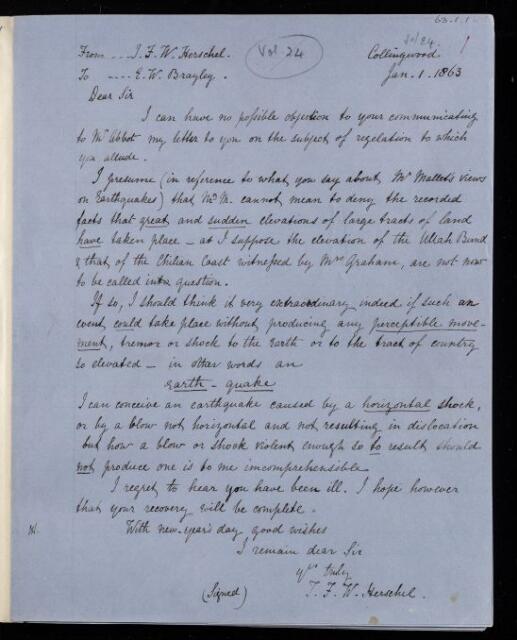 63.1.1
From ... J. F. W. Herschel.
Vol 24
Collingwood
To .... E. W. Brayley.
Jan. 1. 1863
Dear Sir
I can have no possible objection to your communicating
to Mr Abbot my letter to you on the subject of regelation to which
you allude.
I presume (in reference to what you say about Mr Mallet's views
on Earthquakes) that Mr M. cannot mean to deny the recorded
facts that great and sudden elevations of large tracts of land
have taken place – as I suppose the elevation of the Ullah Bund
& that of the Chilian Coast witnessed by Mrs Graham, are not now
to be called into question.
If so, I should think it very extraordinary indeed if such an
event could take place without producing any perceptible move-
ment, tremor or shock to the Earth or to the tract of country
so elevated – in other words an
Earth-quake
I can conceive an earthquake caused by a horizontal shock,
or by a blow not horizontal and not resulting in dislocation
but how a blow or shock violent enough so to result should
not produce one is to me incomprehensible
I regret to hear you have been ill. I hope however
that your recovery will be complete.
With new-year's day good wishes
I remain dear Sir
yrs truly
(Signed) J. F. W. Herschel.